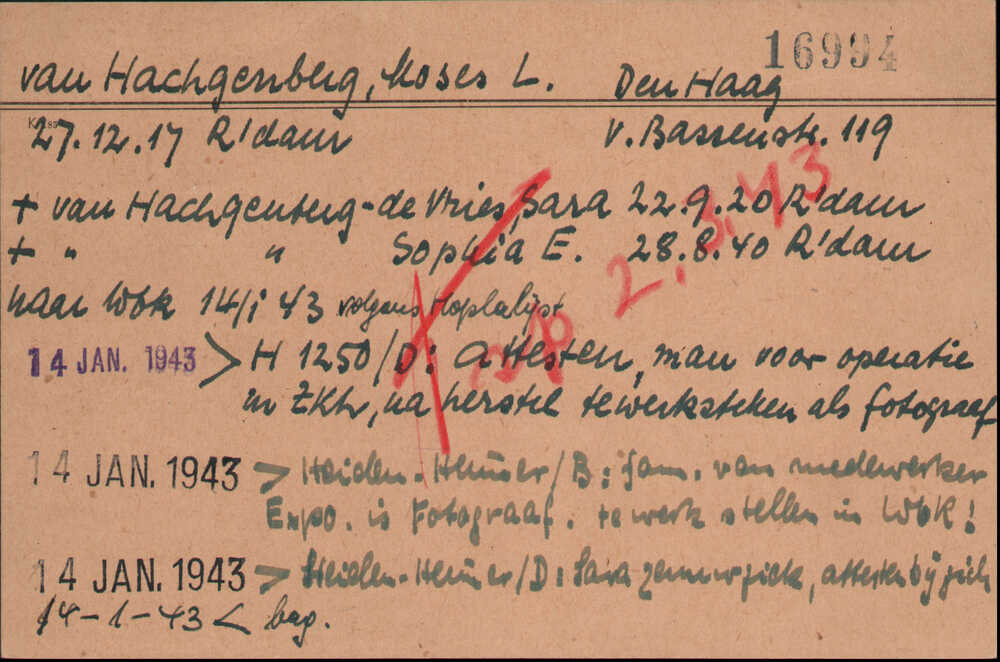 16994
van Hachgenberg, Moses L. Den Haag
27.12.17 R'dam v. Bassenstr. 119
+ van Hachgenberg-de Vries, Sara 22.9.20 R'dam
+ " " Sophia E. 28.8.40 R'dam
2.3.43
naar Wbk 14/1 43 volgens Hoplalijst
14 JAN. 1943 > H 1250/D: attesten, man voor operatie
in ZKh, na herstel tewerkstellen als fotograaf
14 JAN. 1943 > Heiden-Heimer/B: fam. van medewerker
Expo. is Fotograaf. te werk stellen in Wbk!
14 JAN. 1943 > Heiden-Heimer/D: Sara zenuwziek, attesten bij zich
14-1-43 < bag.